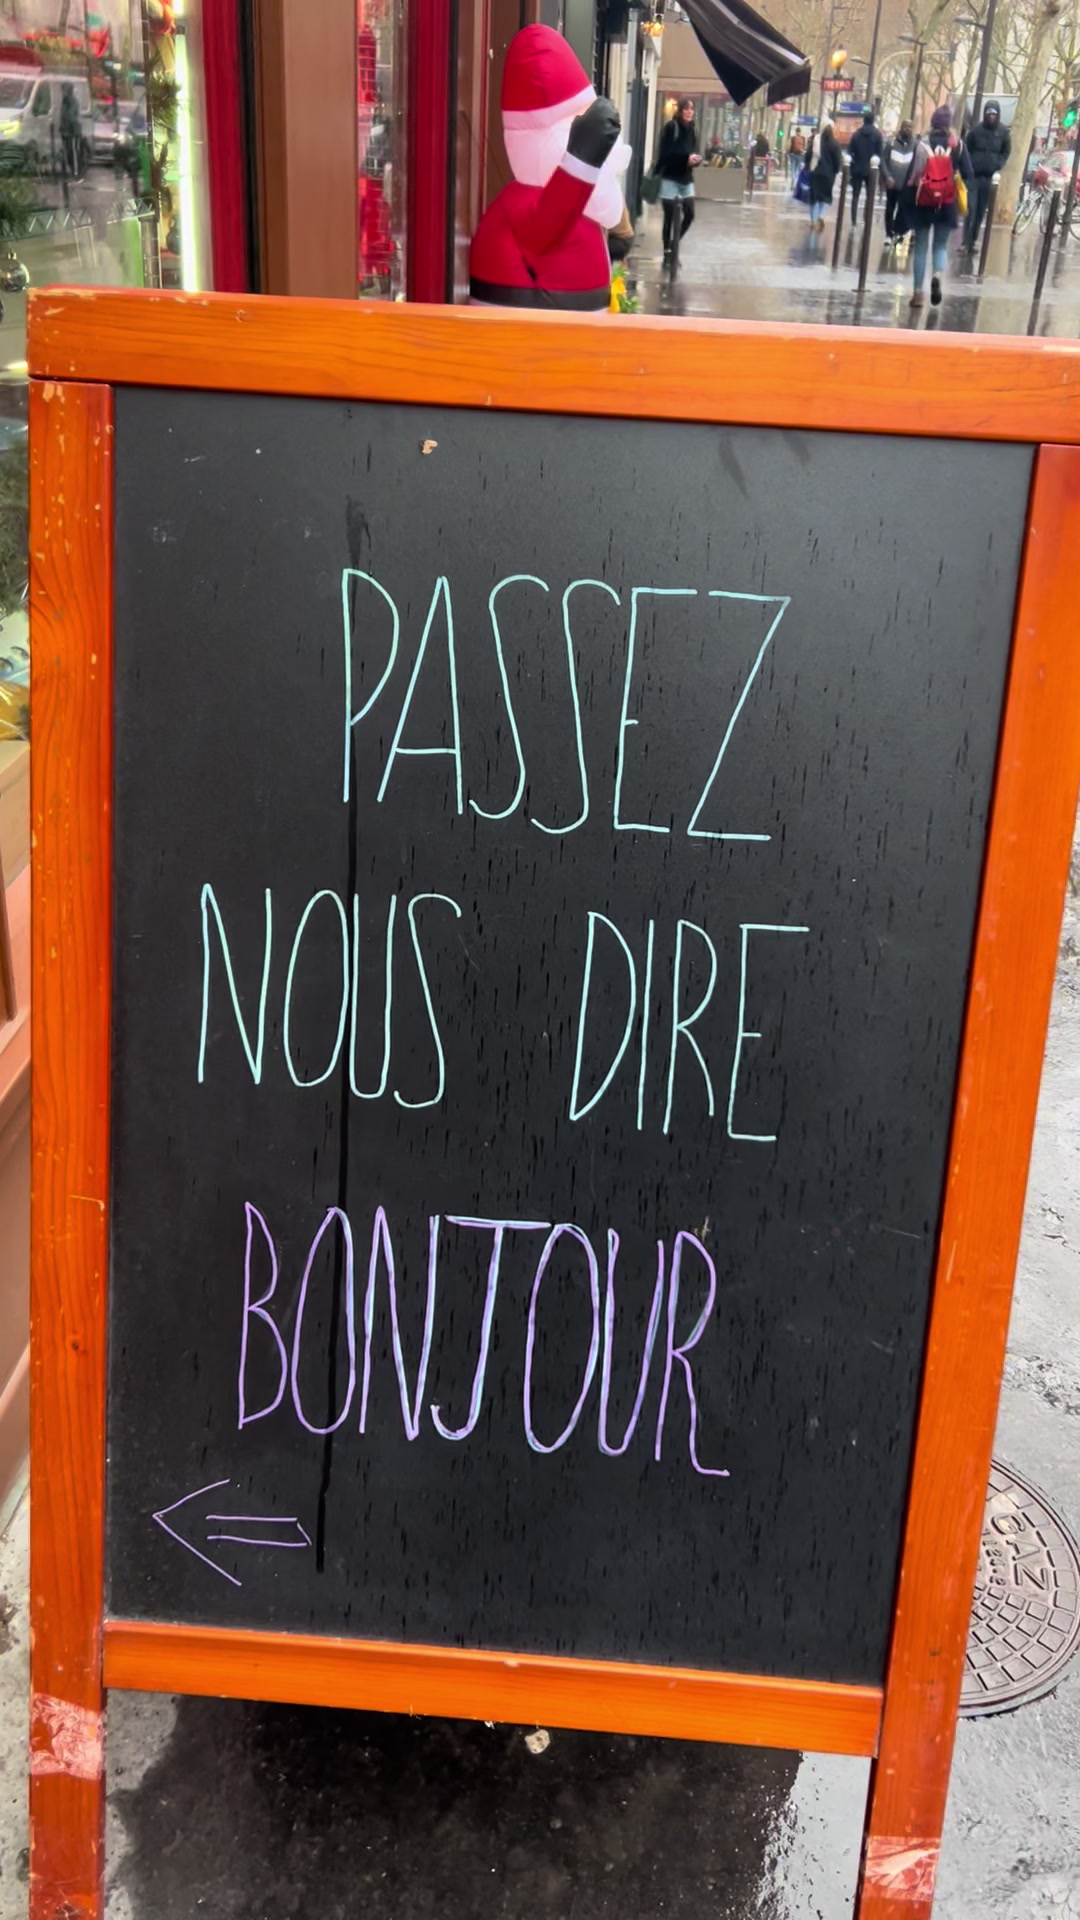 METRO
PASSEZ
NOUS DIRE
BONJOUR
GAZ